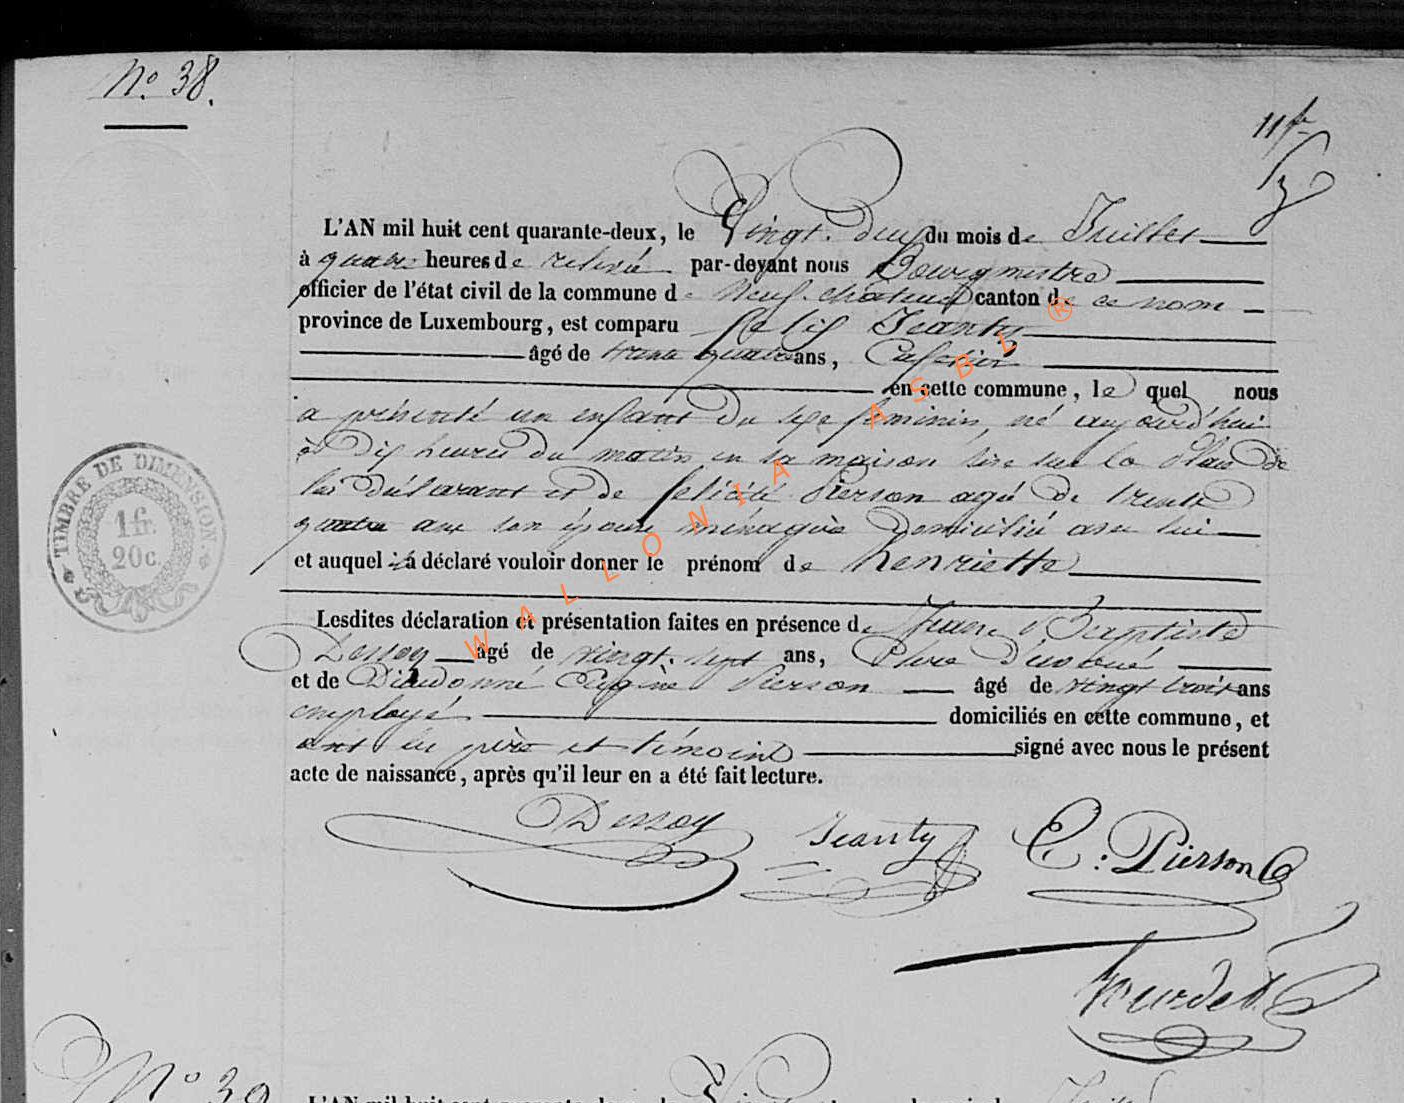 N.° 38.
11 f
L'AN mil huit cent quarante-deux, le Vingt-Deux du mois de Juillet
à quatre heures de relevé par-devant nous Bourgmestre
officier de l'état civil de la commune de Neufchateau canton de ce nom
province de Luxembourg, est comparu Felix Jeanty
âgé de trente quatre ans, Cafetier
en cette commune, lequel nous
a présenté un enfant du sexe feminin, né aujourd'hui
à Dix heures du matin en sa maison sise sur la Place de
lui déclarant et de felicité Pierson agée de trente
quatre ans son épouse ménagère Domiciliée avec lui
et auquel il a déclaré vouloir donner le prénom de henriette
Lesdites déclaration et présentation faites en présence de Jean Baptiste
Dessoy âgé de vingt-sept ans, Clerc d'avoué
et de Dieudonné Eugène Pierson âgé de vingt trois ans
employé domiciliés en cette commune, et
ont les père et témoins signé avec nous le présent
acte de naissance, après qu'il leur en a été fait lecture.
Dessoy Jeanty E. Pierson
TIMBRE DE DIMENSION
1 fr.
20 c.
WALLONIA ASBL ®
N° 39
L'AN mil huit cent